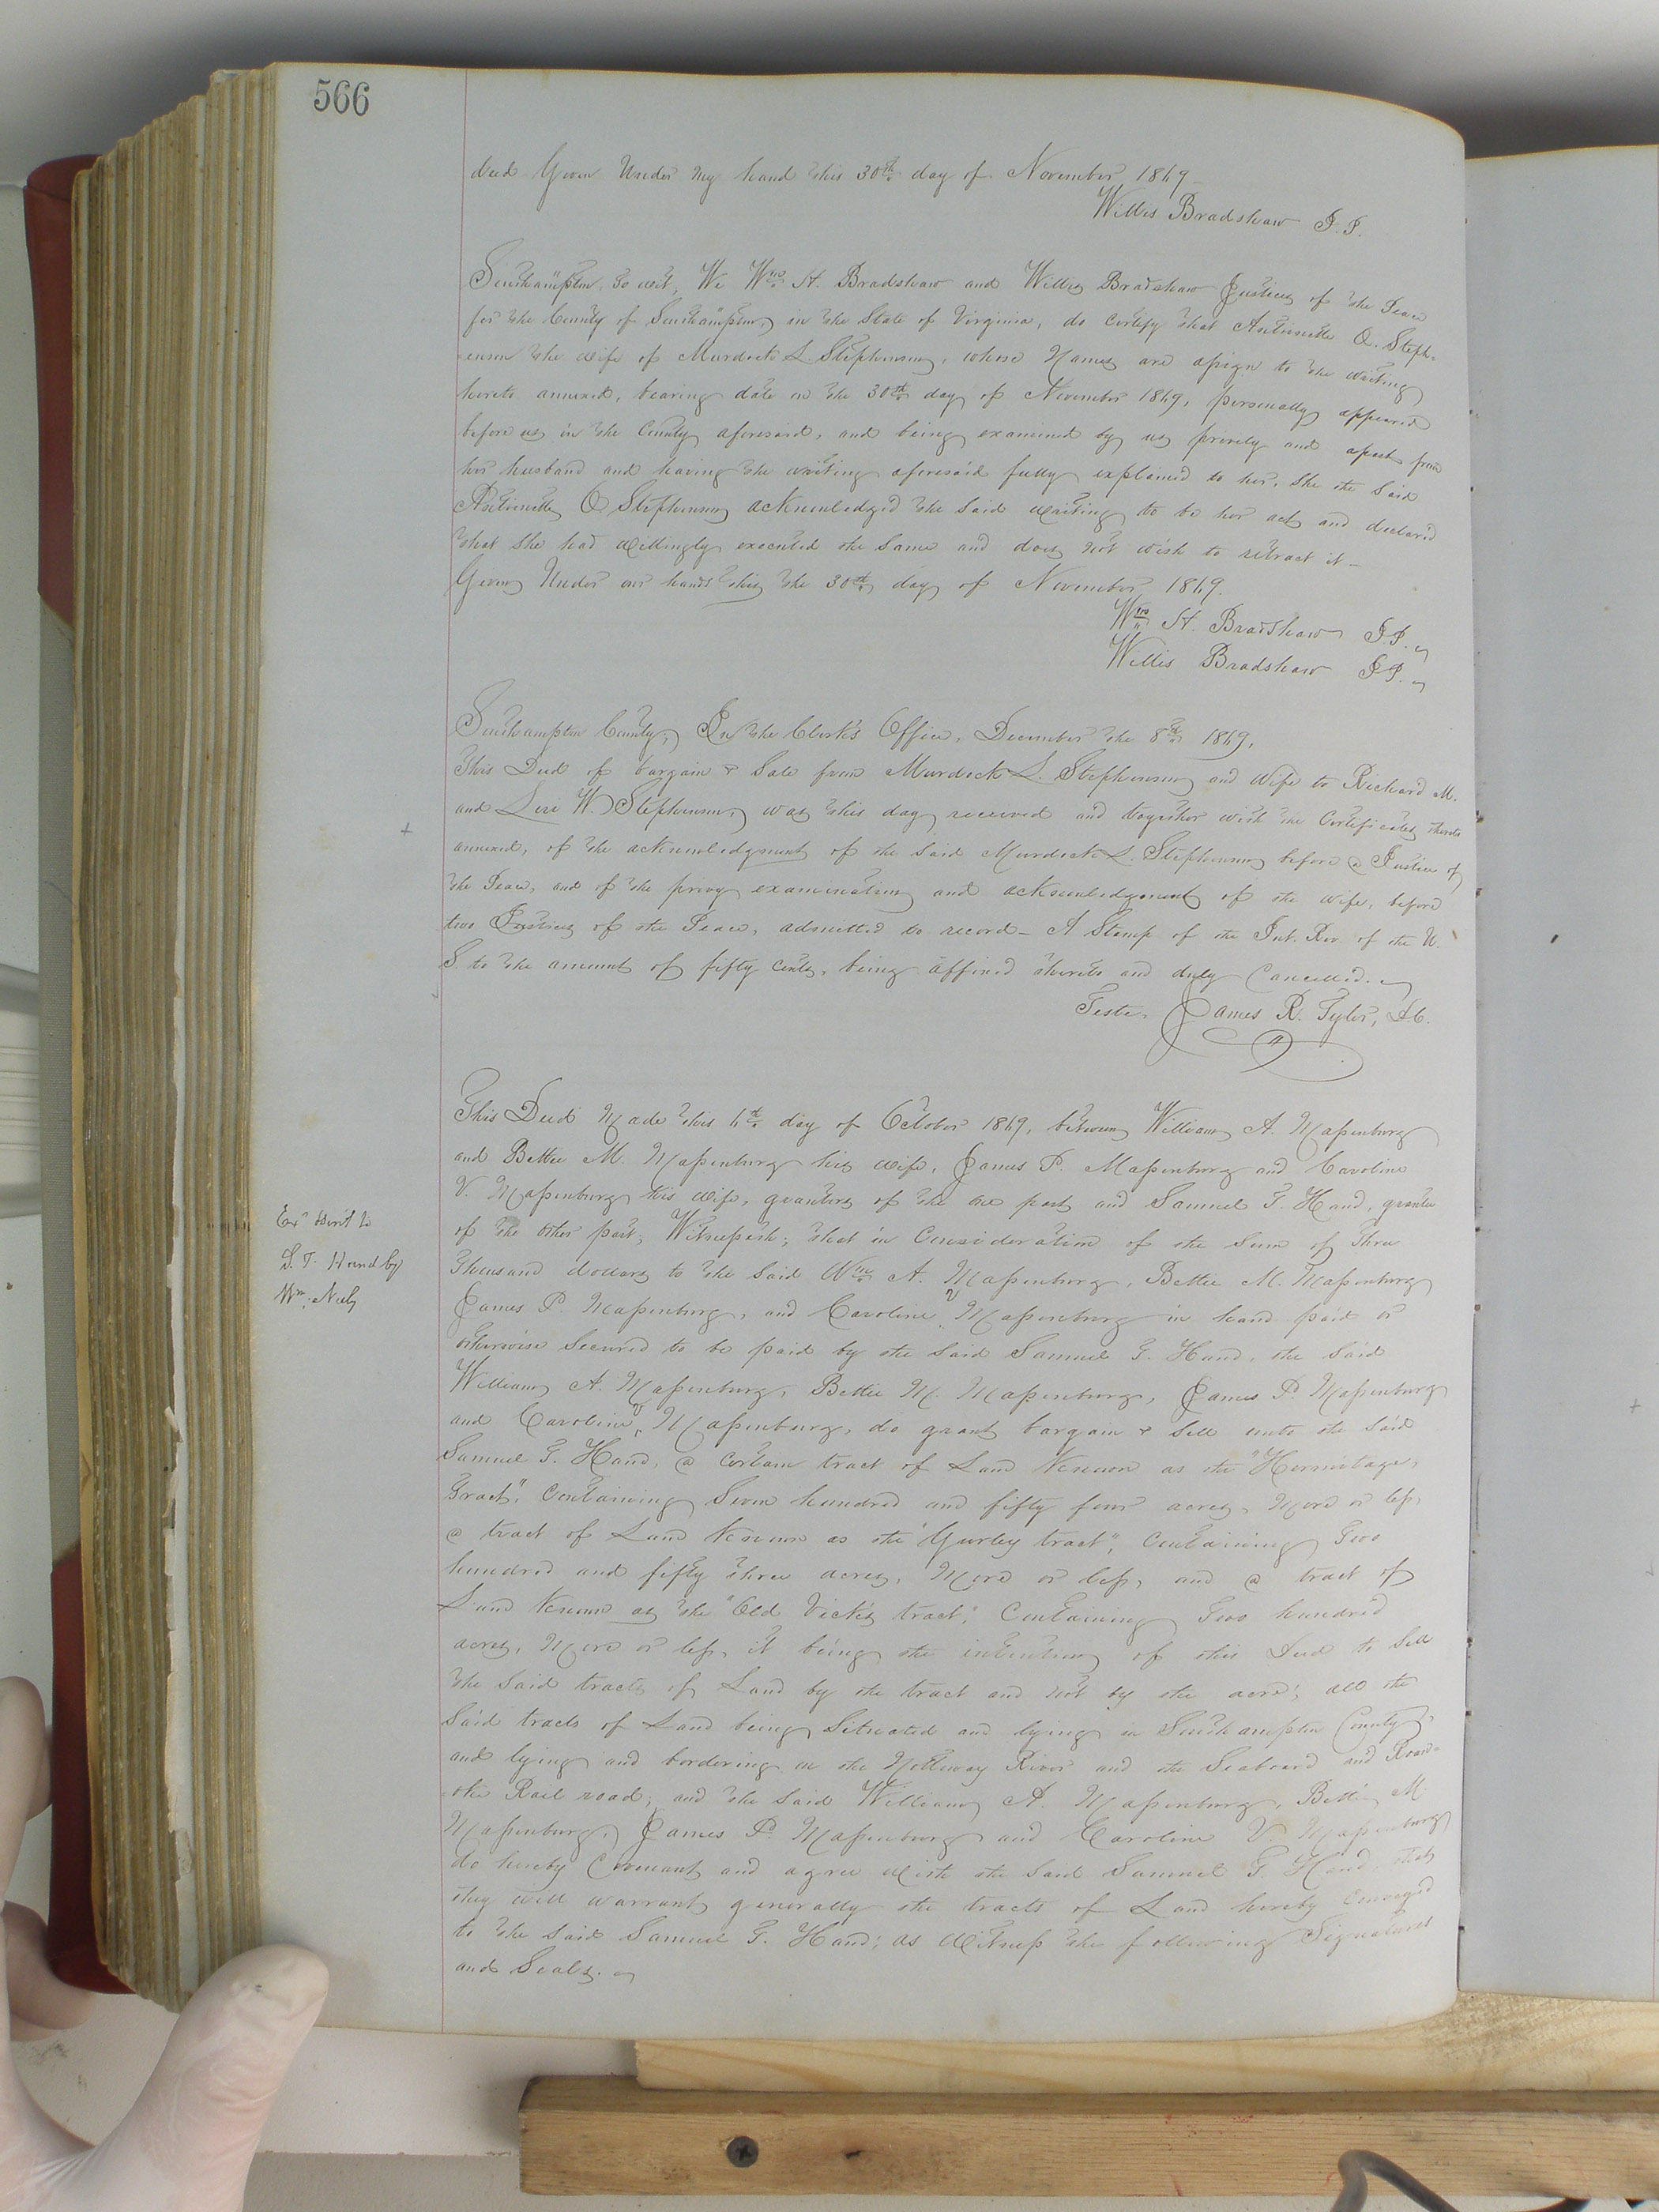 566
deed Given Under my hand this 30th day of November 1869
Willis Bradshaw J.P.
Southampton, to wit, We Wm H. Bradshaw and Willis Bradshaw Justices of the Peace
for the County of Southampton, in the State of Virginia, do certify that Antoinette Q. Steph-
enson the wife of Murdock L. Stephenson, whose Names are assign to the writing
hereto annexed, bearing date on the 30th day of November 1869, personally appeared
before us in the County aforesaid, and being examined by us privily and apart from
her husband and having the writing aforesaid fully explained to her, She the Said
Antoinette Q Stephenson acknowledged the Said writing to be her act and declared
that She had willingly executed the Same and does not wish to retract it -
Given Under our hands this the 30th day of November 1869.
Wm H. Bradshaw JP.
Willis Bradshaw JP.
Southampton County, In the Clerk's Office, December the 8th 1869.
This Deed of bargain & Sale from Murdock L. Stephenson and Wife to Richard M.
and Levi W. Stephenson, was this day received and together with the Certificates thereto
annexed, of the acknowledgment of the Said Murdock L. Stephenson before a Justice of
the Peace, and of the privy examination and acknowledgment of the wife, before
two Justices of the Peace, admitted to record - A Stamp of the Int. Rev. of the U.
S. to the amount of fifty cents, being affixed thereto and duly Cancelled.
Teste, James R. Tyler, D.C.
This Deed Made this 6th day of October 1869, between William A. Massenburg
and Bettie M. Massenburg his wife, James P. Massenburg and Caroline
V. Massenburg his wife, grantors of the one part and Samuel T. Hand, grantee
of the other part; Witnesseth; that in Consideration of the Sum of Three
Thousand dollars to the Said Wm A. Massenburg, Bettie M. Massenburg
James P. Massenburg, and Caroline V Massenburg in hand paid or
otherwise Secured to be paid by the Said Samuel T. Hand, the Said
William A. Massenburg, Bettie M. Massenburg, James P. Massenburg
and Caroline V Massenburg, do grant bargain & Sell unto the Said
Samuel T. Hand, a certain tract of Land Known as the "Hermitage,
Tract", Containing Seven hundred and fifty four acres, More or less,
a tract of Land Known as the "Gurley tract", Containing Two
hundred and fifty three acres, More or less, and a tract of
Land Known as the "Old Vick's tract," Containing Two hundred
acres, More or less, it being the intention of this Deed to Sell
the Said tracts of Land by the tract and not by the acre; all the
Said tracts of Land being Situated and lying in Southampton County,
and lying and bordering on the Nottoway River and the Seaboard and Roan-
oke Rail road; and the Said William A. Massenburg, Bettie M
Massenburg, James P. Massenburg and Caroline V. Massenburg
do hereby Covenant and agree with the Said Samuel T. Hand, that
they will warrant generally the tracts of Land hereby Conveyed
to the Said Samuel T. Hand; as Witness the following Signatures
and Seals.
S. T. Hand by